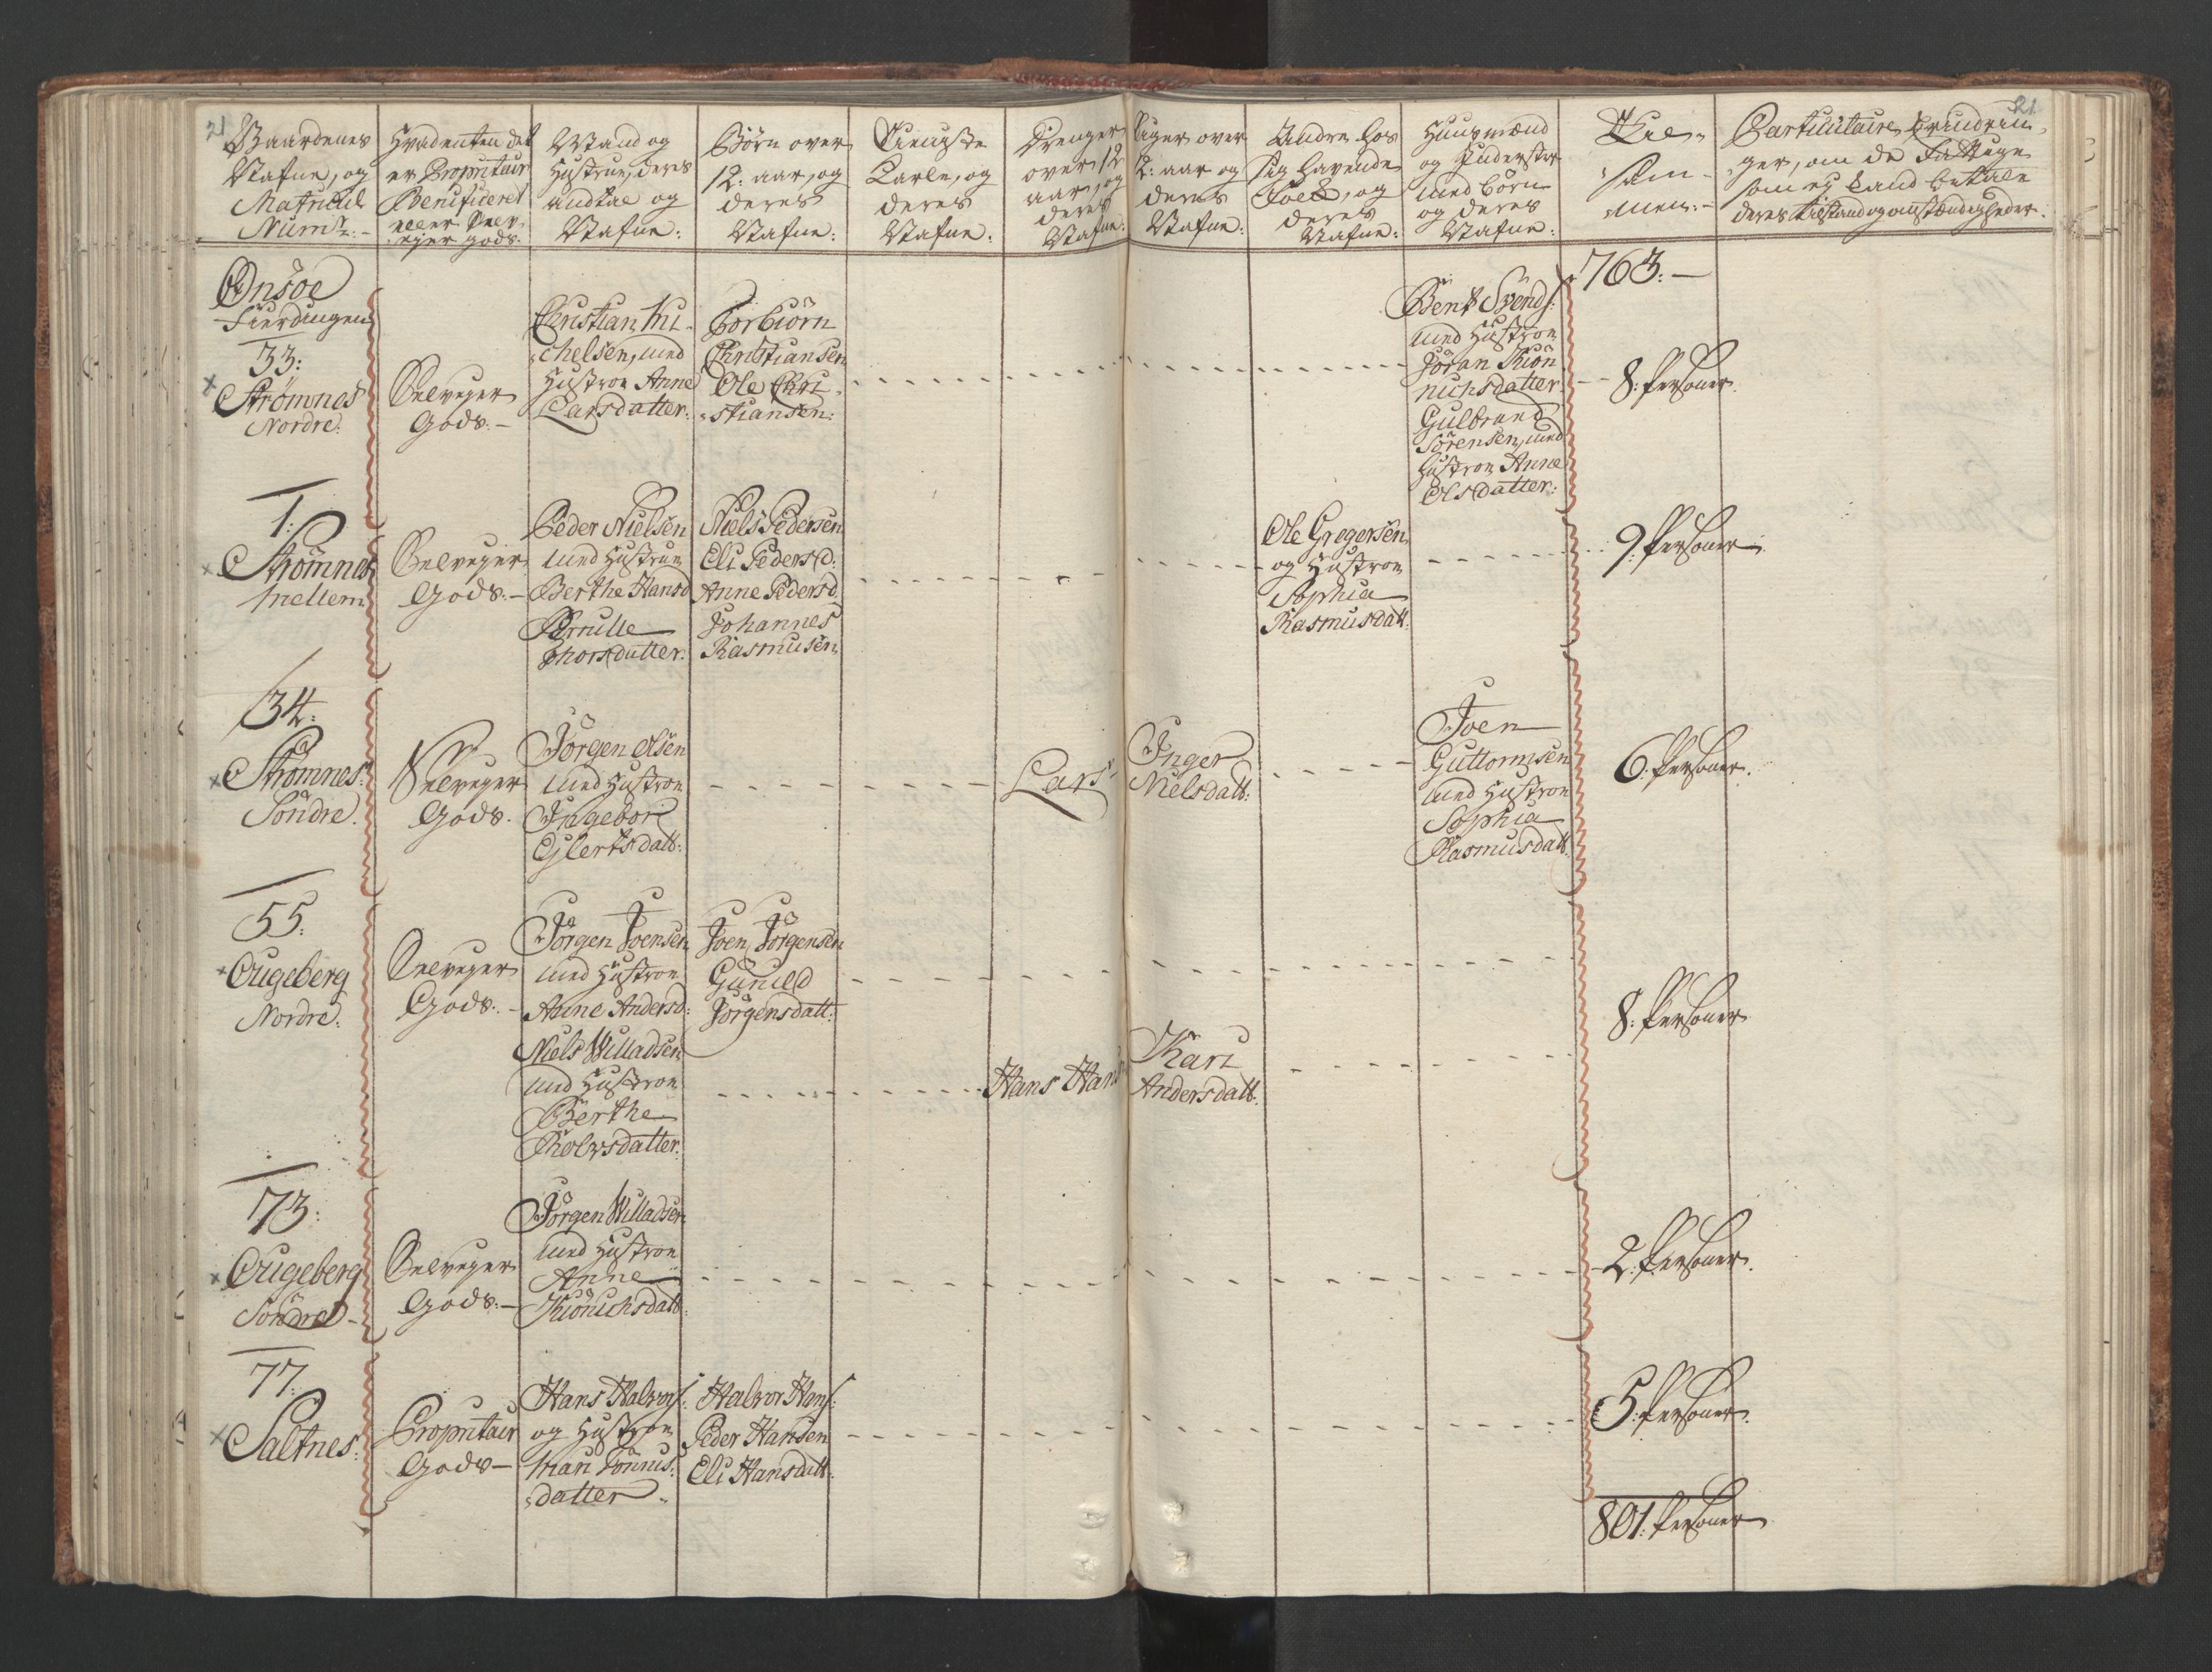 21
21
Gaardenes
Nafne, og
Matricul
Num̅r:
Hvadenten det
er Propritair
Benificeret
eller Selv-
ejer gods.
Mand og
Hustrue, deres
Antal og
Nafne:
Börn over
12: aar, og
deres
Nafne:
Tieniste
Karle, og
deres
Nafne:
Drenger
over 12
aar, og
deres
Nafne:
Piger over
12: aar og
deres
Nafne:
Andre hos
sig havende
Folk, og
deres
Nafne:
Huusmænd
og Inderster
med börn
og deres
Nafne:
Til-
sam-
men:
Particulaire Erindrin-
ger, om de fattige
som ej kand betale
deres tilstand og omstændigheder.
Onsöe
Fierdingen
763:
33:
Strömnes
Nordre:
Selvejer
Gods.
Christian Mi-
chelsen, med
Hustroe Anne
Larsdatter:
Torbiörn
Christiansen
Ole Chri-
stiansen:
Bent Svends:
med Hustroe
Jöran Kiön
nichsdatter
Gulbrand
Sörensen, med
Hustroe Anne
Olsdatter:
8: Personer
1:
Strömnes
mellem
Selvejer
Gods.
Peder Nielsen
med Hustrue
Berthe Hansd
Pernille
Thorsdatter:
Niels Pedersen
Eli Pedersd:
Anne Pedersd
Johannes
Rasmusen
Ole Gregersen
og Hustroe
Sophia
Rasmusdatt.
9: Personer
34:
Strömnes
Söndre.
Selvejer
Gods.
Jörgen Olsen
med Hustroe
Ingebor
Ejlertsdatt:
Lars
Inger
Nielsdatt:
Joen
Guttormsen
med Hustroe
Sophia
Rasmusdatt.
6: Personer.
55:
Ougeberg
Nordre.
Selvejer
Gods.
Jörgen Joensen
med Hustroe
Anne Andersd:
Niels Willadsen
med Hustroe
Berthe
Rolvsdatter:
Joen Jörgensen
Gunild
Jörgensdatt:
Hans Hans
Kari
Andersdatt.
8: Personer
73:
Ougeberg
Söndre
Selvejer
Gods.
Jörgen Willadsen
med Hustroe
Anne
Kiönichsdatt:
2: Personer.
77.
Saltnes:
Propritair
Gods
Hans Halvors:
og Hustroe
Mari Tönnis:
datter
Halvor Hans:
Peder Hansen
Eli Hansdatt:
5: Personer.
801: Personer